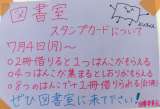 図書室
スタンプカードについて
7月4日(月)〜
○2冊借りると1つはんこがもらえる
○4つはんこが集まるとしおりがもらえる
○8つのはんこで+1冊借りられる
ぜひ図書室に来て下さい!